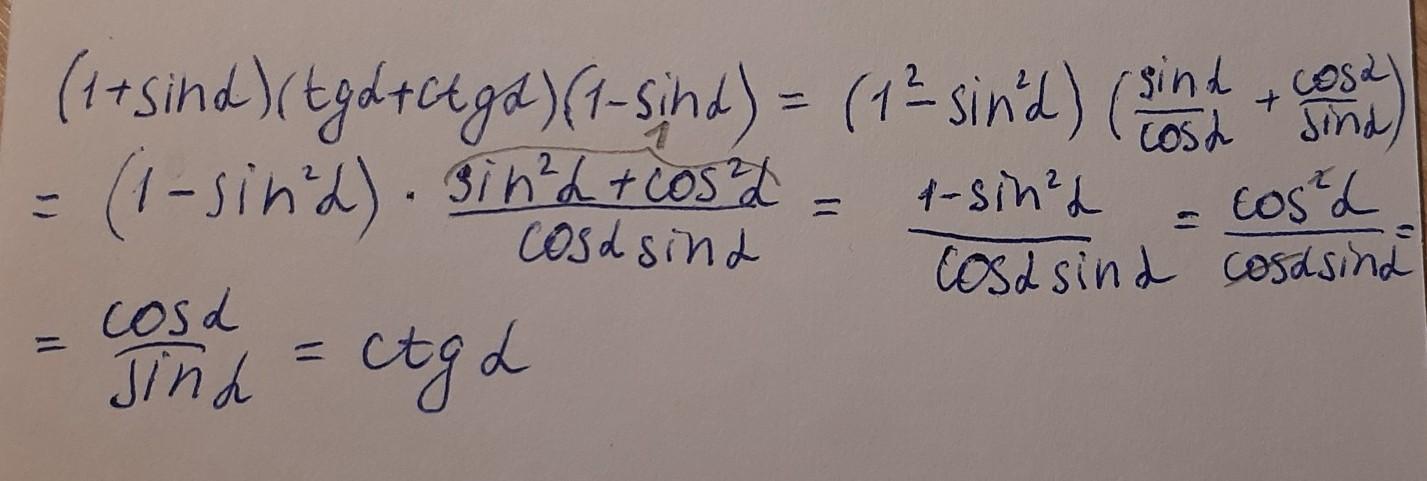 (1+sinα)(tgα+ctgα)(1-sinα) = (1²-sin²α)(sinα/cosα + cosα/sinα)
= (1-sin²α) · (sin²α+cos²α)/(cosα sinα) = (1-sin²α)/(cosα sinα) = cos²α/(cosα sinα) =
1
= cosα/sinα = ctg α